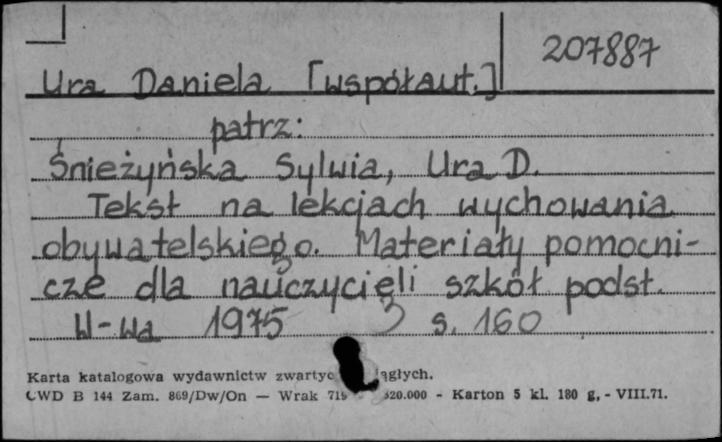 207887
Ura Daniela [współaut.]
patrz:
Śnieżyńska Sylwia, Ura D.
Tekst na lekcjach wychowania
obywatelskiego. Materiały pomocni-
cze dla nauczycieli szkół podst.
W-wa 1975 s. 160
Karta katalogowa wydawnictw
CWD B 144 Zam. 869/Dw/On — Wrak - Karton 5 kl. 180 g, - VIII.71.